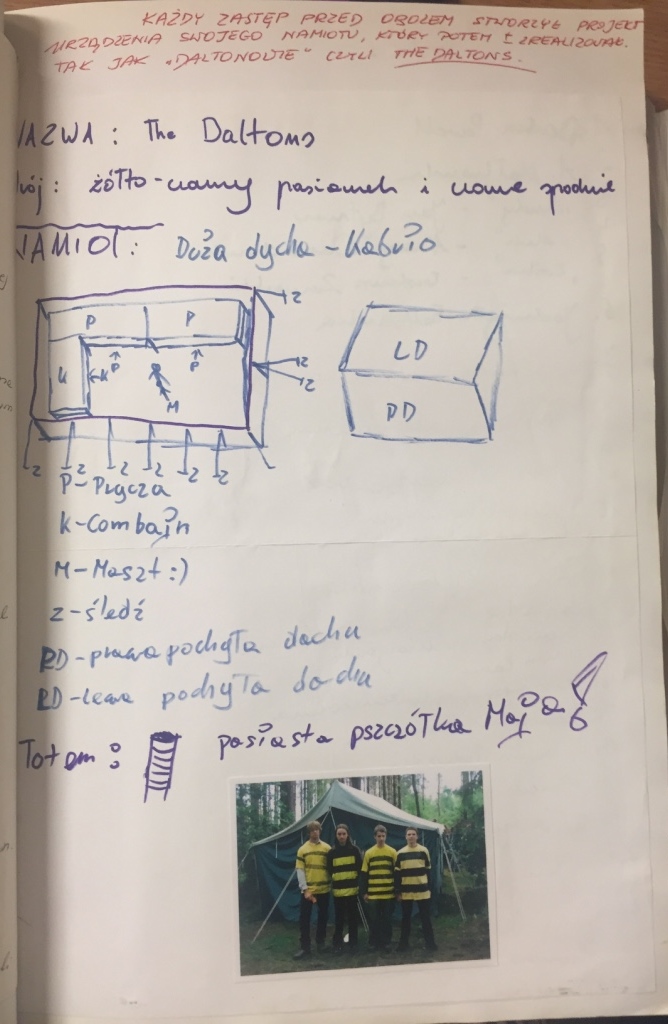 KAŻDY ZASTĘP PRZED OBOZEM STWORZYŁ PROJEKT
URZĄDZENIA SWOJEGO NAMIOTU, KTÓRY POTEM ZREALIZOWAŁ.
TAK JAK „DALTONOWIE" CZYLI THE DALTONS.
NAZWA: The Daltons
żółto-czarny pasiamek i czarne spodnie
NAMIOT: Duża dycha - Kabuło
z
P P
LD
K K P P z
z
M
PD
z z z z z z
P-Prycza
K-Combajn
M-Maszt:)
z-śledź
PD-prawa pochyła dachu
LD-lewa pochyła dachu
Totem: pasiasta pszczółka Maja